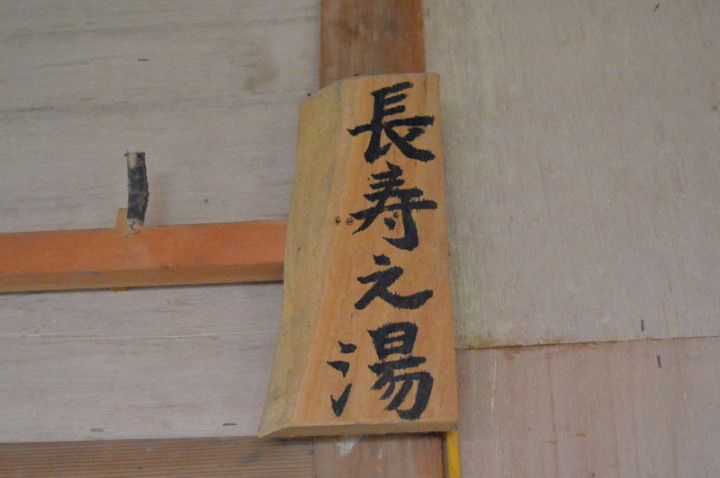 長寿之湯